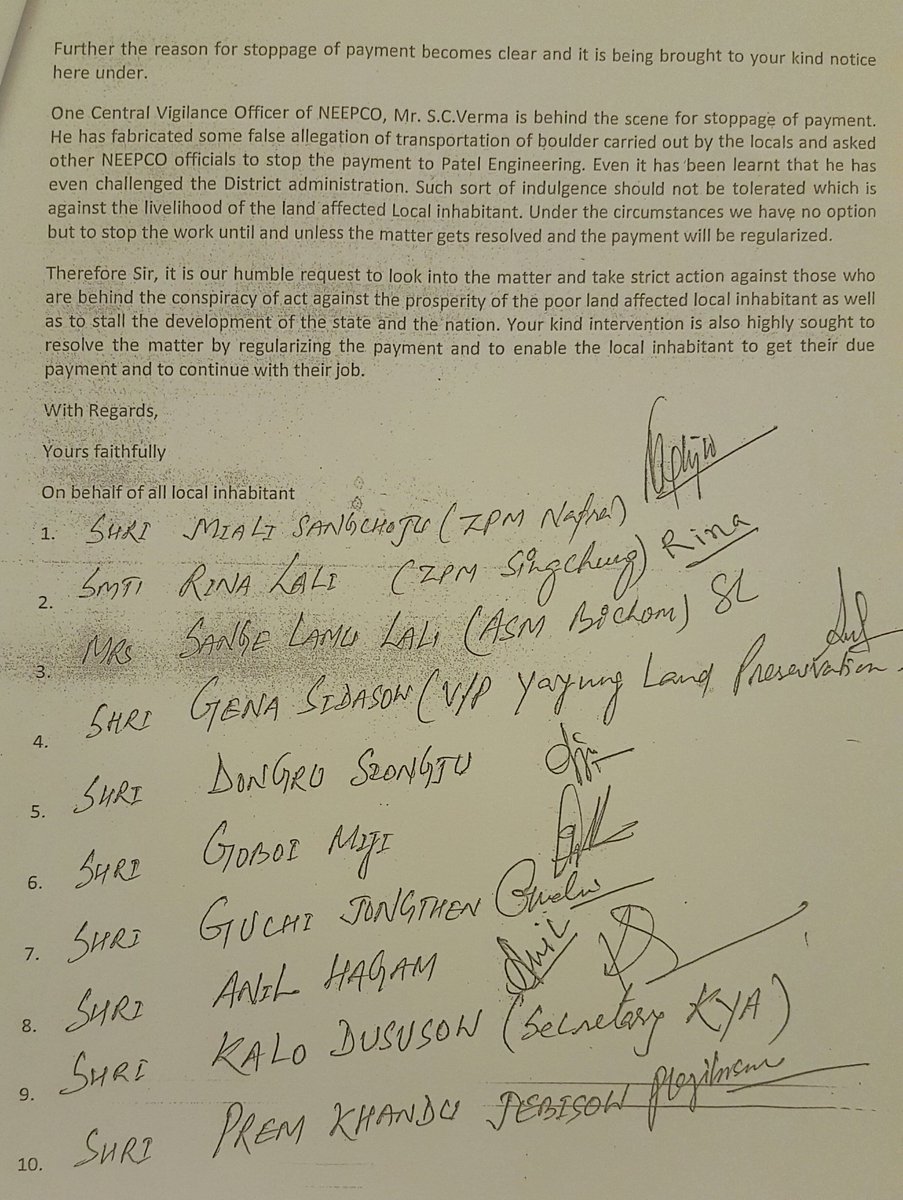 Further the reason for stoppage of payment becomes clear and it is being brought to your kind notice
here under.
One Central Vigilance Officer of NEEPCO, Mr. S.C.Verma is behind the scene for stoppage of payment.
He has fabricated some false allegation of transportation of boulder carried out by the locals and asked
other NEEPCO officials to stop the payment to Patel Engineering. Even it has been learnt that he has
even challenged the District administration. Such sort of indulgence should not be tolerated which is
against the livelihood of the land affected Local inhabitant. Under the circumstances we have no option
but to stop the work until and unless the matter gets resolved and the payment will be regularized.
Therefore Sir, it is our humble request to look into the matter and take strict action against those who
are behind the conspiracy of act against the prosperity of the poor land affected local inhabitant as well
as to stall the development of the state and the nation. Your kind intervention is also highly sought to
resolve the matter by regularizing the payment and to enable the local inhabitant to get their due
payment and to continue with their job.
With Regards,
Yours faithfully
On behalf of all local inhabitant
1. SHRI MIALI SANGCHOJU (ZPM Nafra)
2. SMTI RINA LALI (ZPM Singchung) Rina
3. MRS SANGE LAMU LALI (ASM Bichom) SL
4. SHRI GENA SIDASOW (V/P Yayung Land Preservation
5. SHRI DONGRU SZONGJU
6. SHRI GOBOI MIJI
7. SHRI GUCHI JONGTHEN
8. SHRI ANIL HAGAM Anil
9. SHRI KALO DUSUSOW (Secretary KYA)
10. SHRI PREM KHANDU JEBISOW